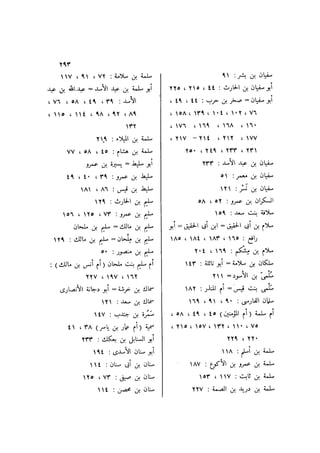 ٢٩٣
سفيان بن بشر : ٩١
أبو سفيان بن الحارث : ٤٤ ، ٢١٥ ، ٢٢٥
أبو سفيان = صخر بن حرب : ٤٤ ، ٤٩ ،
٧٦ ، ١٠٢ ، ١٠٤ ، ١٣٩ ، ١٥٨ ،
١٦٠ ، ١٦٨ ، ١٦٩ ، ١٧٦ ،
١٧٧ ، ٢١٢ ، ٢١٤ – ٢١٧ ،
٢٣١ ، ٢٣٣ ، ٢٤٩ ، ٢٥٠
سفيان بن عبد الأسد : ٢٣٣
سفيان بن معمر : ٥١
سفيان بن نسر : ١٢١
السكران بن عمرو : ٥٢ ، ٥٨
سلافة بنت سعد : ١٥٩
سلام بن أبى الحقيق = ابن أبى الحقيق = أبو
رافع : ١٦٥ ، ١٨٣ ، ١٨٤ ، ١٨٥
سلام بن مشكم : ١٦٩ ، ٢٠٤
سلكان بن سلامة = أبو نائلة : ١٤٣
سلمى بن الأسود = ٢١١
سلمى بنت قيس = أم المنذر : ١٨٢
سلمان الفارسى : ٩٠ ، ٩١ ، ١٦٩
أم سلمة ( أم المؤمنين ) ٤٥ ، ٤٩ ، ٥٨ ،
٧٥ ، ١١٠ ، ١٣٢ ، ١٥٧ ، ٢١٥ ،
٢٢٠ ، ٢٢٩
سلمة بن أسلم : ١١٨
سلمة بن عمرو بن الأكوع : ١٨٧
سلمة بن ثابت : ١١٧ ، ١٥٣
سلمة بن دريد بن الصمة : ٢٢٧
سلمة بن سلامة : ٧٢ ، ٩١ ، ١١٧
أبو سلمة بن عبد الأسد = عبد الله بن عبد
الأسد : ٣٩ ، ٤٩ ، ٥٨ ، ٧٦ ،
٨٩ ، ٩٢ ، ٩٨ ، ١١٤ ، ١١٥ ،
١٣٢
سلمة بن الميلاء : ٢١٩
سلمة بن هشام : ٤٥ ، ٥٨ ، ٧٧
أبو سليط = يسيرة بن عمرو
سليط بن عمرو : ٣٩ ، ٤٠ ، ٤٩
سليط بن قيس : ٨٦ ، ١٨١
سليم بن الحارث : ١٢٩
سليم بن عمرو : ٧٣ ، ١٢٥ ، ١٥٦
سليم بن مالك = سليم بن ملحان
سليم بن ملحان = سليم بن مالك : ١٢٩
سليم بن منصور : ٥٠
أم سليم بنت ملحان ( أم أنس بن مالك ) :
١٦٢ ، ١٩٧ ، ٢٢٧
سماك بن خرشة = أبو دجانة الأنصارى
سماك بن سعد : ١٢١
سمرة بن جندب : ١٤٧
سمية ( أم عمار بن ياسر ) ٣٨ ، ٤١
أبو السنابل بن بعكك : ٢٣٣
أبو سنان الأسدى : ١٩٤
سنان بن أبى سنان : ١١٤
سنان بن صيفى : ٧٣ ، ١٢٥
سنان بن محصن : ١١٤